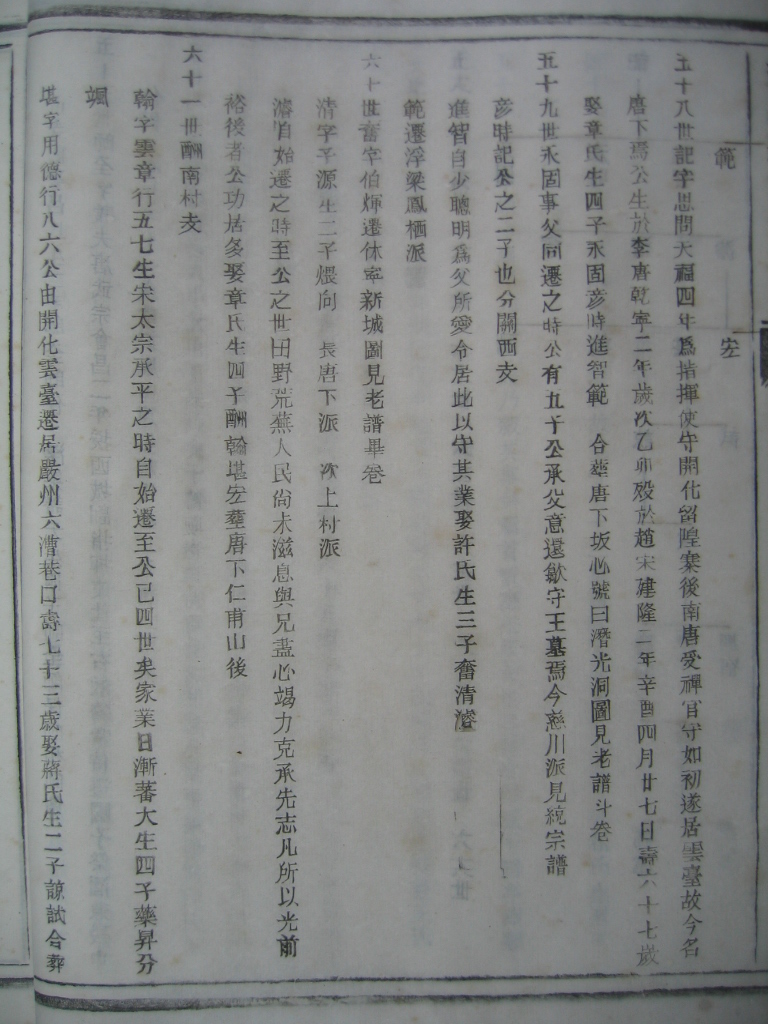 範 宏
五十八世記字思問天福四年爲指揮使守開化留隍寨後南唐受禪官守如初遂居雲臺故今名
唐下焉公生於李唐乾寧二年歲次乙卯殁於趙宋建隆二年辛酉四月廿七日壽六十七歲
娶章氏生四子永固彦時進智範 合塟唐下坂心號曰潛光洞圖見老譜斗卷
五十九世永固事父同遷之時公有五子公承父意還歙守王墓焉今慈川派見統宗譜
彦時記公之二子也分關西支
進智自少聰明爲父所愛令居此以守其業娶許氏生三子奮清濬
範遷浮梁鳳栖派
六十世奮字伯輝遷休寧新城圖見老譜畢卷
清字子源生二子煨向 長唐下派 次上村派
濬自始遷之時至公之世田野荒蕪人民尚未滋息與兄盡心竭力克承先志凡所以光前
裕後者公功居多娶章氏生四子酬翰堪宏塟唐下仁甫山後
六十一世酬南村支
翰字雲章行五七生宋太宗承平之時自始遷至公已四世矣家業日漸蕃大生四子藥昇分
颯
堪字用德行八六公由開化雲臺遷居嚴州六漕巷口壽七十三歲娶蔣氏生二子諒試合葬